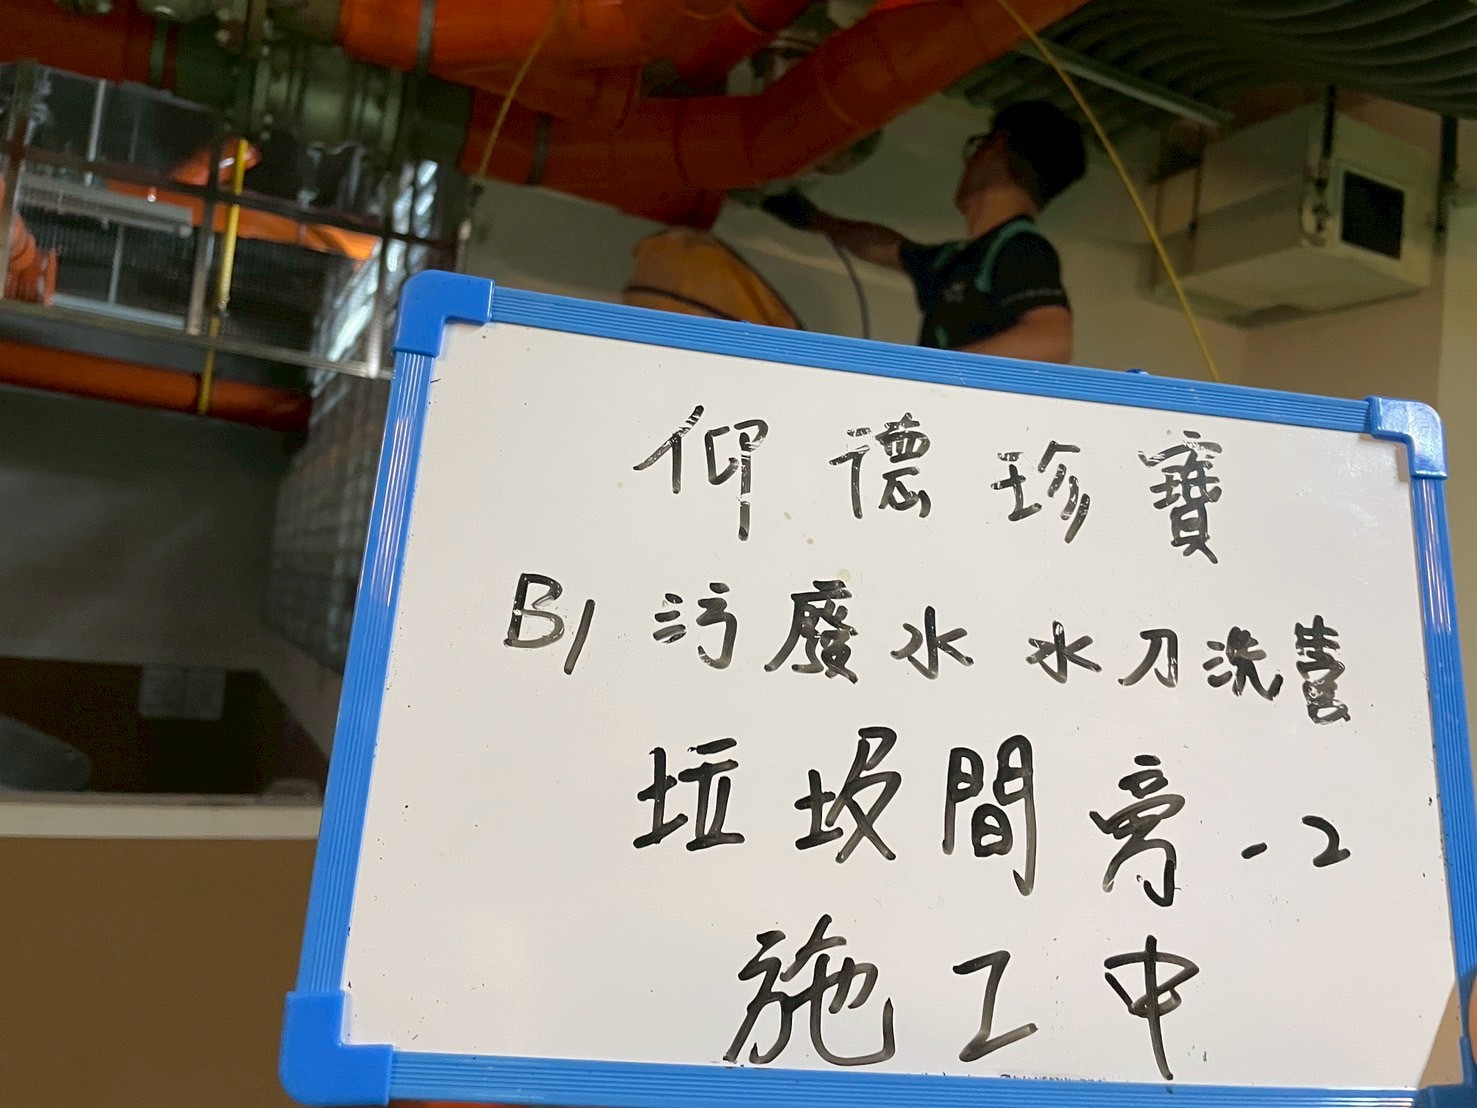 仰德珍寶
B1 污廢水 水刀洗管
垃圾間旁-2
施工中